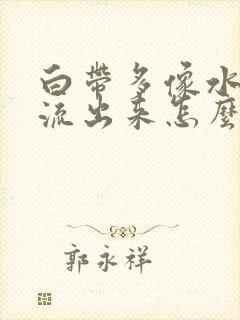 白帶多像水
流出來怎麼
郭永祥